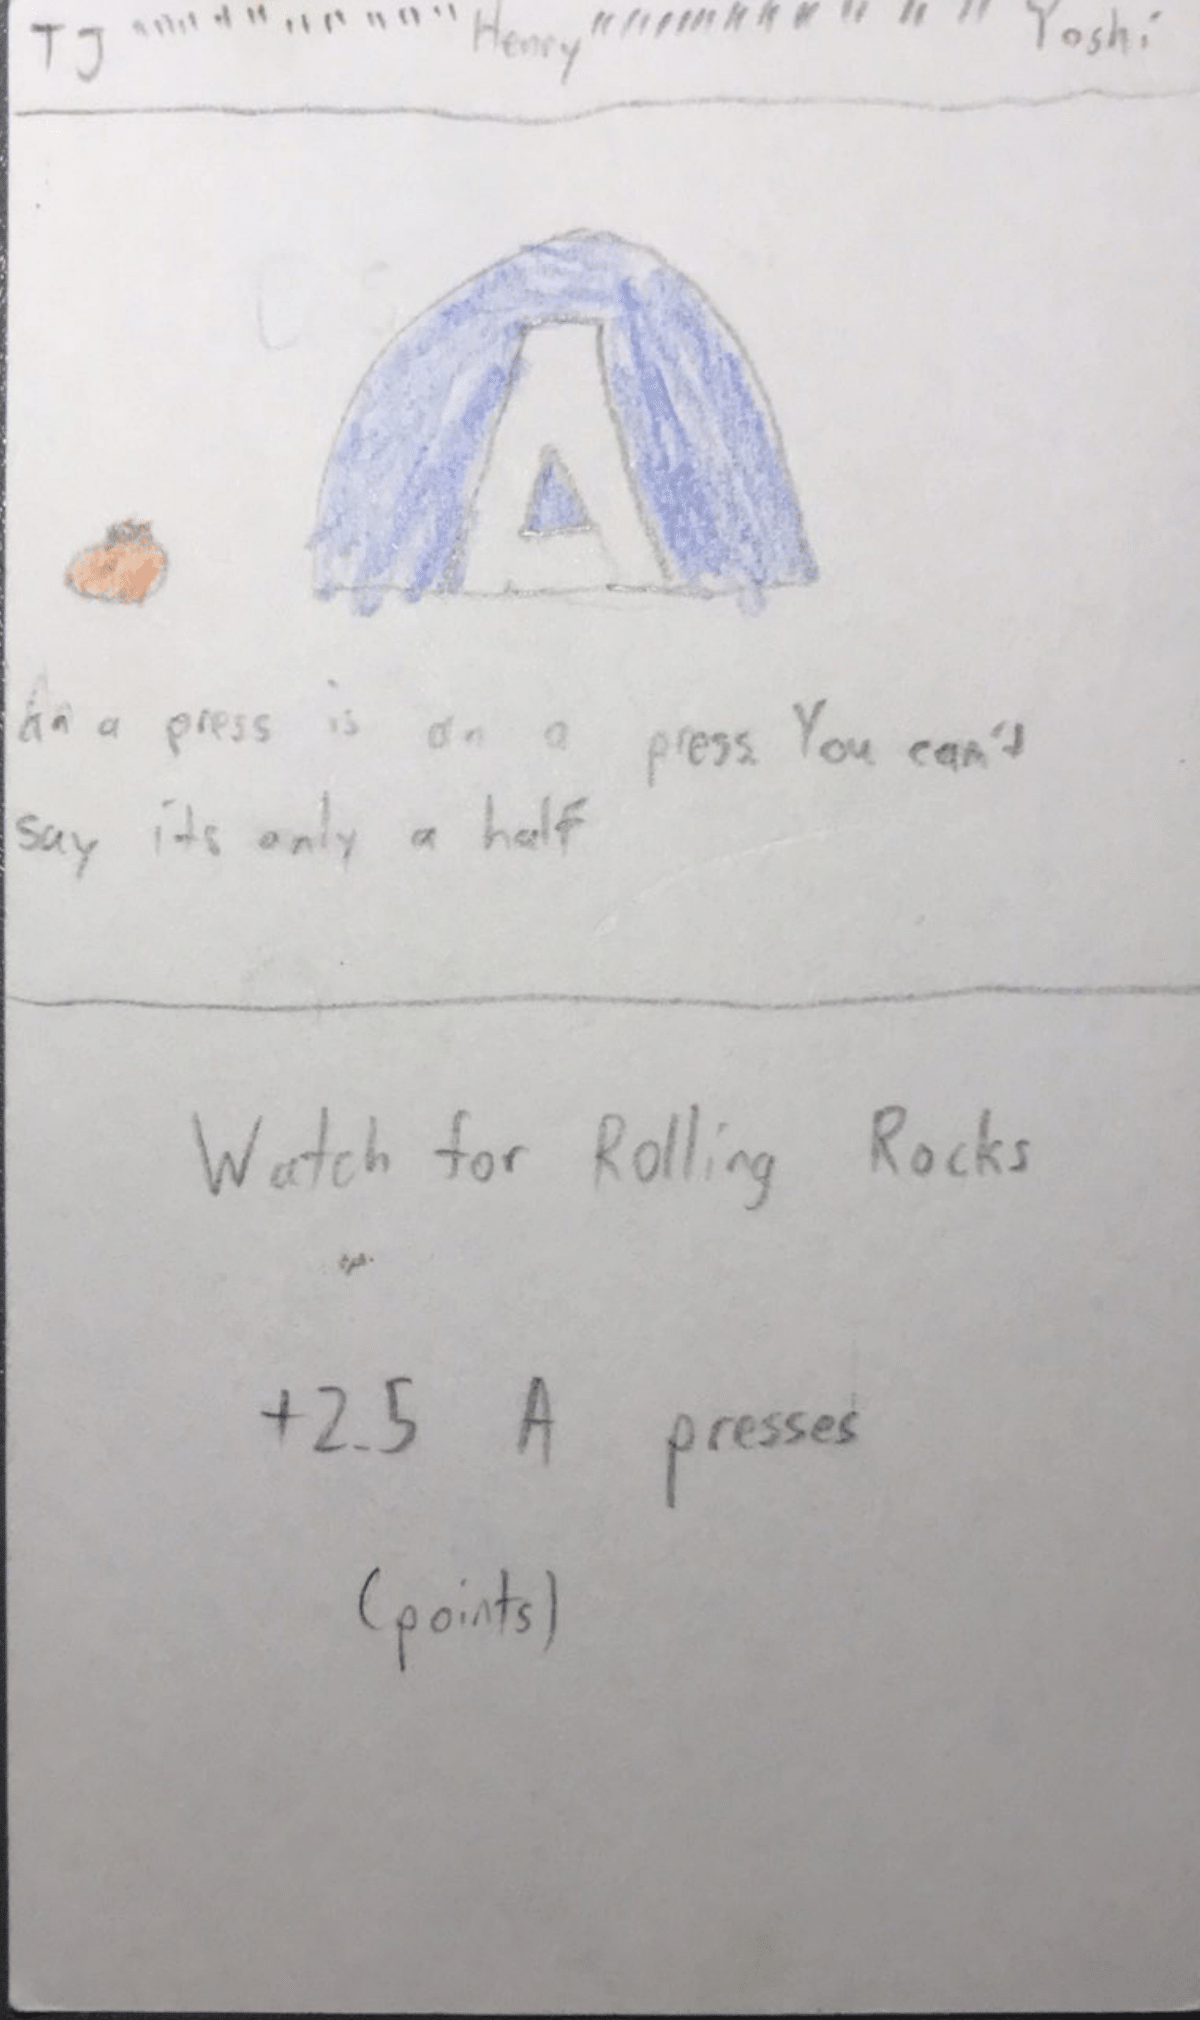 TJ """""""""""" Henry """"""""""""""" Yoshi
A
An a press is an a press You can't
say its only a half
Watch for Rolling Rocks
+2.5 A presses
(points)